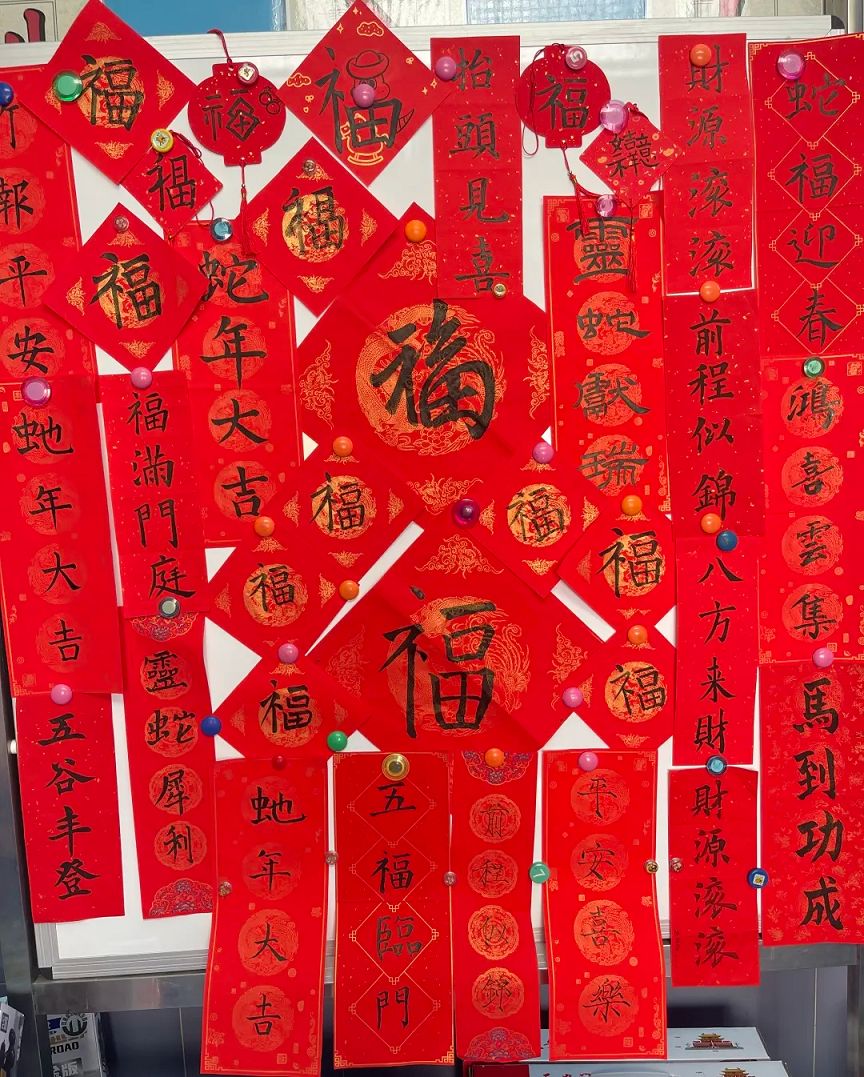 福
福
福
抬頭見喜
福
財源滾滾
蛇福迎春
竹報平安
福
福
福
蛇年大吉
福
靈蛇獻瑞
前程似錦
鴻喜雲集
虵年大吉
福滿門庭
福
福
福
福
八方来財
五谷丰登
靈蛇犀利
福
福
福
馬到功成
虵年大吉
五福臨門
前程似錦
平安喜樂
財源滾滾
ROAD